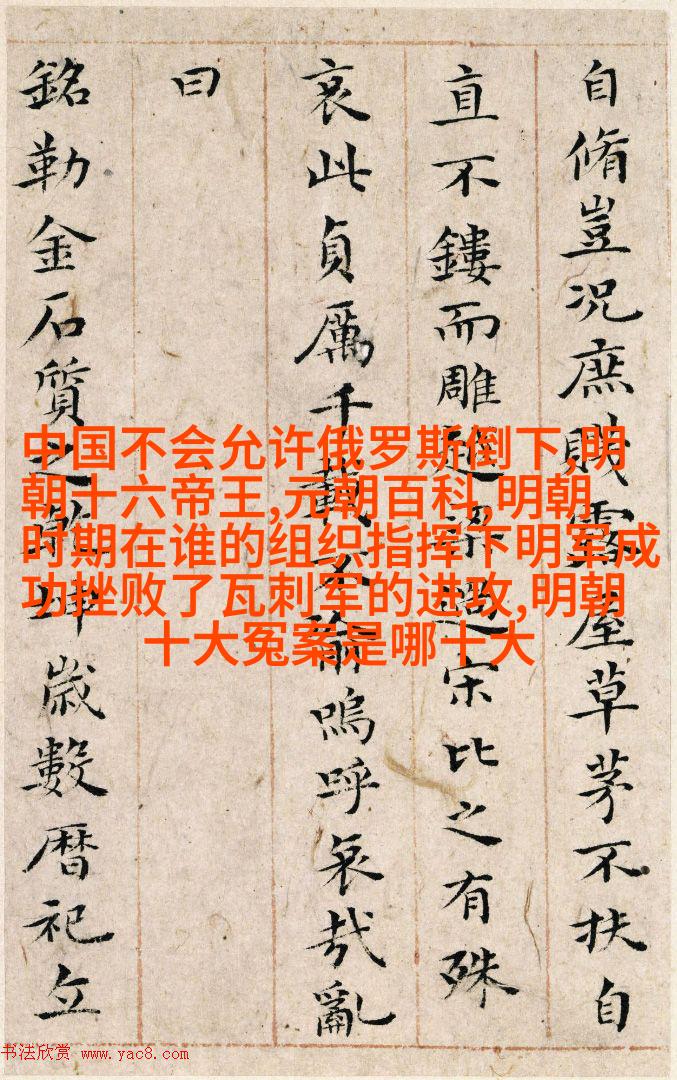 自脩豈况庶賤露屋草茅不扶自
直不鏤而雕越梁過宋比之有殊
哀此貞厲千載不渝嗚呼哀哉亂
曰
銘勒金石質之乾坤歲數曆祀立
中国不会允许俄罗斯倒下,明
朝十六帝王,元朝百科,明朝
时期在谁的组织指挥下明军成
功挫败了瓦刺军的进攻,明朝
十大冤案是哪十大
书法欣赏 www.yac8.com